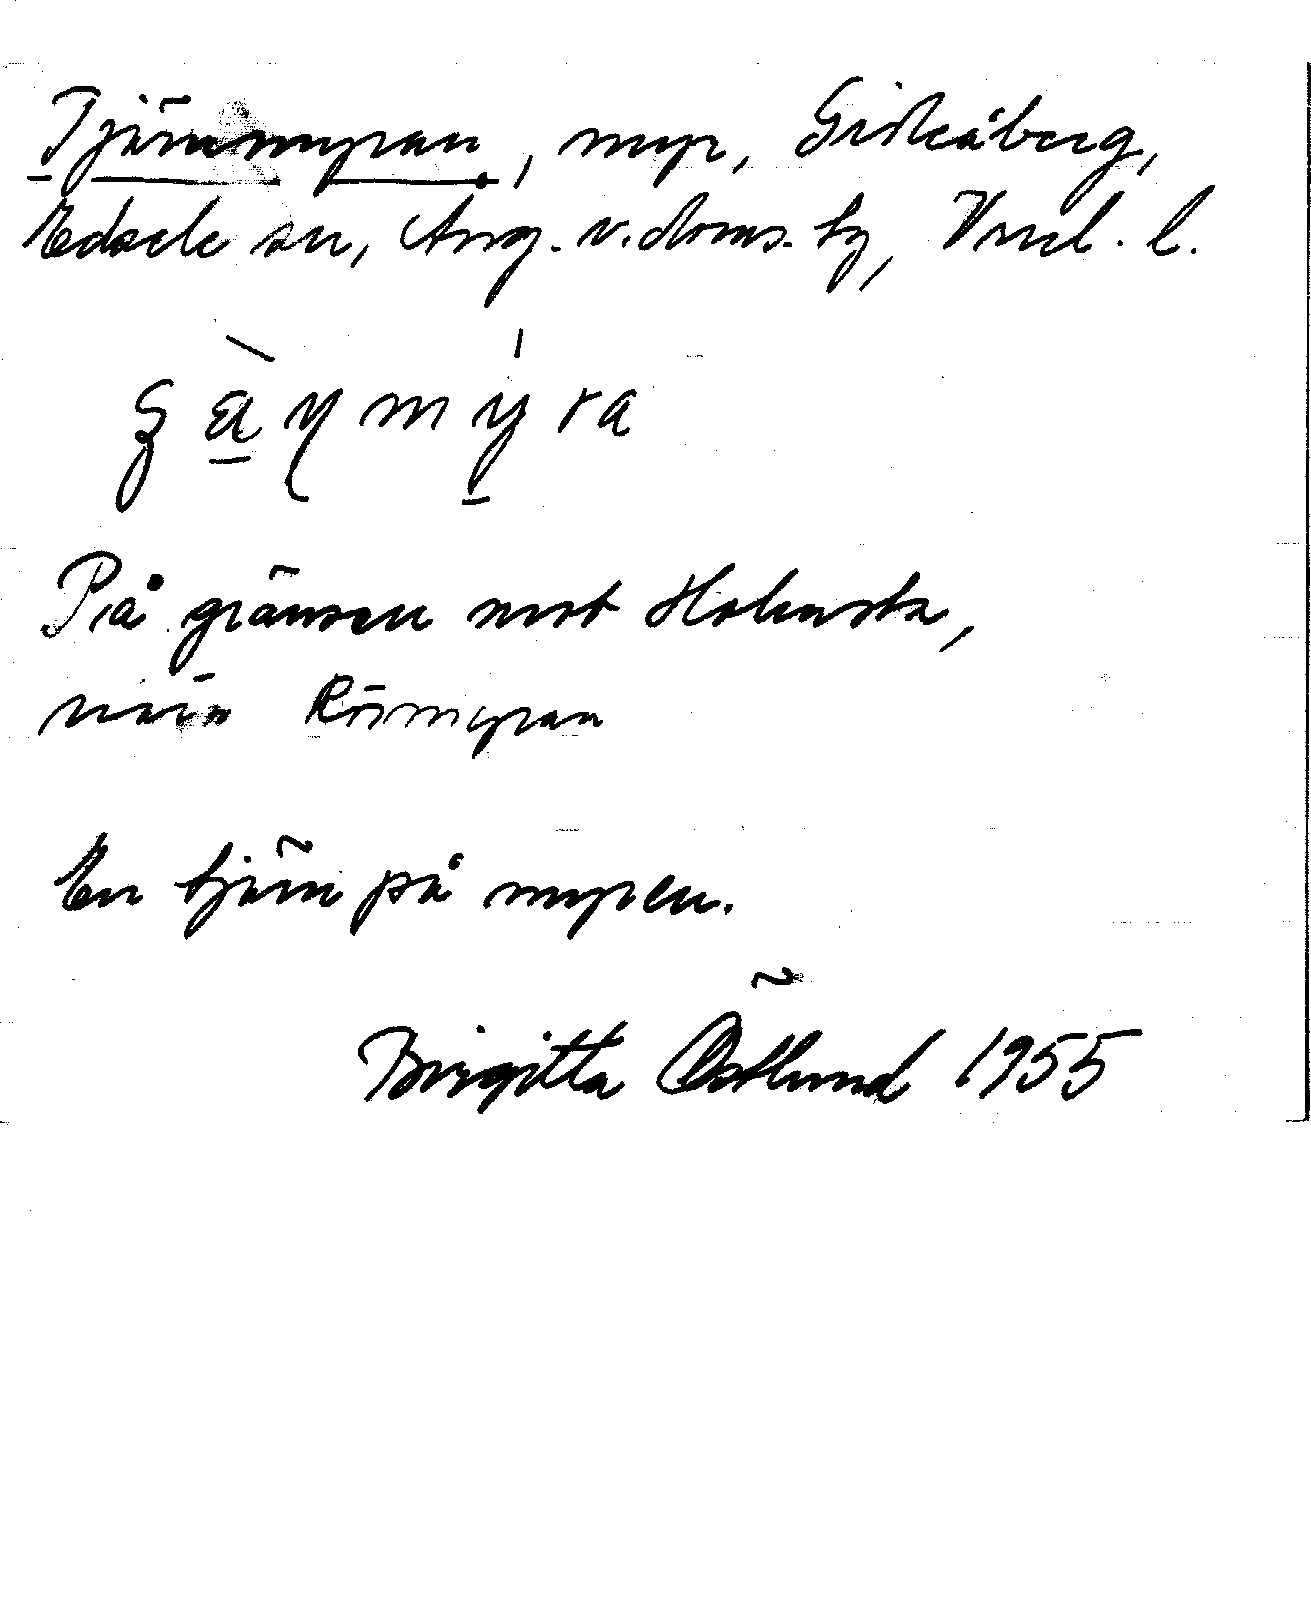 Tjärnmyran, myr, Gideåberg,
Edsele sn, Ång. v. doms. tg, Vnrl. l.
På gränsen mot Holmsta,
nära Rörmyran
En tjärn på myren.
Birgitta Östlund 1955